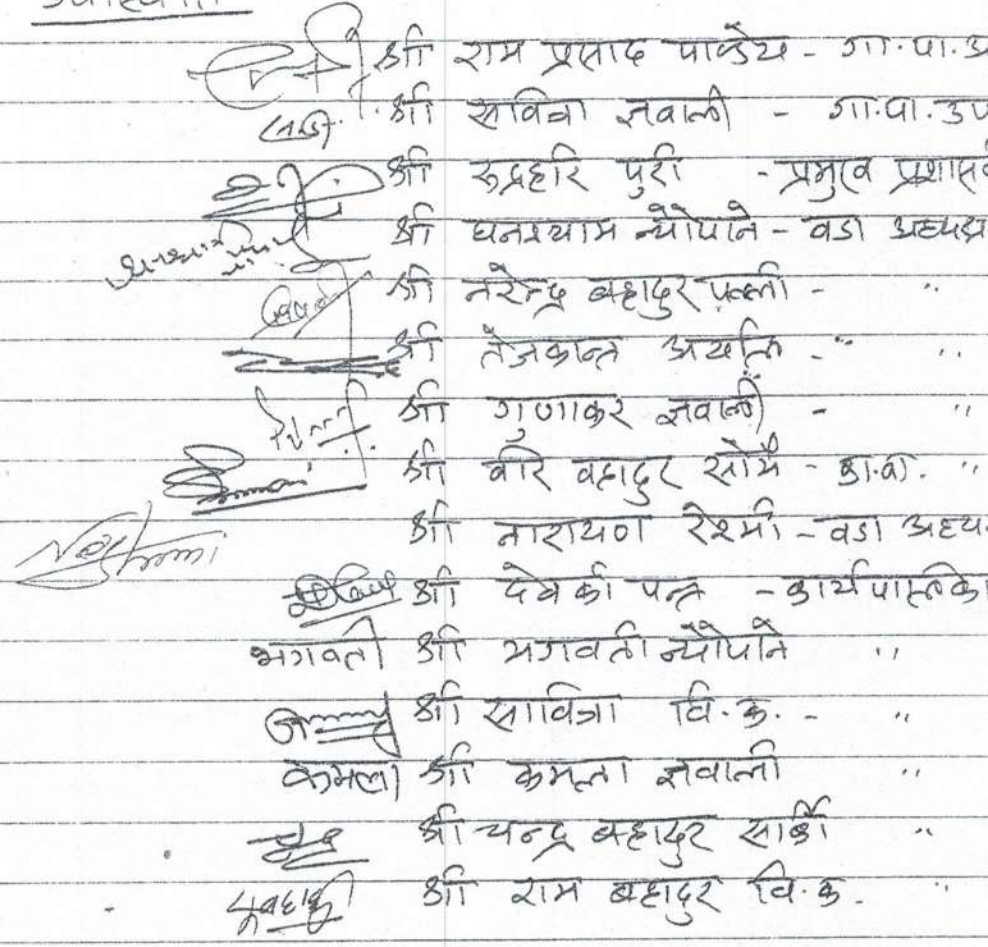 श्री राम प्रसाद पाण्डेय - गा.पा.अ
श्री सवित्रा ज्ञवाली - गा.पा.उप
श्री रुद्रहरि पुरी - प्रमुख प्रशास
श्री घनश्याम न्यौपाने - वडा अध्यक्ष
श्री नरेन्द्र बहादुर पल्ली - "
श्री तेजकान्त अर्याल - " "
श्री गुणाकर ज्ञवाली - "
श्री वीर बहादुर सोमै - का.वा. "
श्री नारायण रेश्मी - वडा अध्य
श्री देवकी पन्त - कार्यपालिका
भगवती श्री भगवती न्यौपाने "
श्री सावित्रा वि.क. - "
कमला श्री कमला ज्ञवाली "
श्री चन्द्र बहादुर सार्की "
श्री राम बहादुर वि.क. "